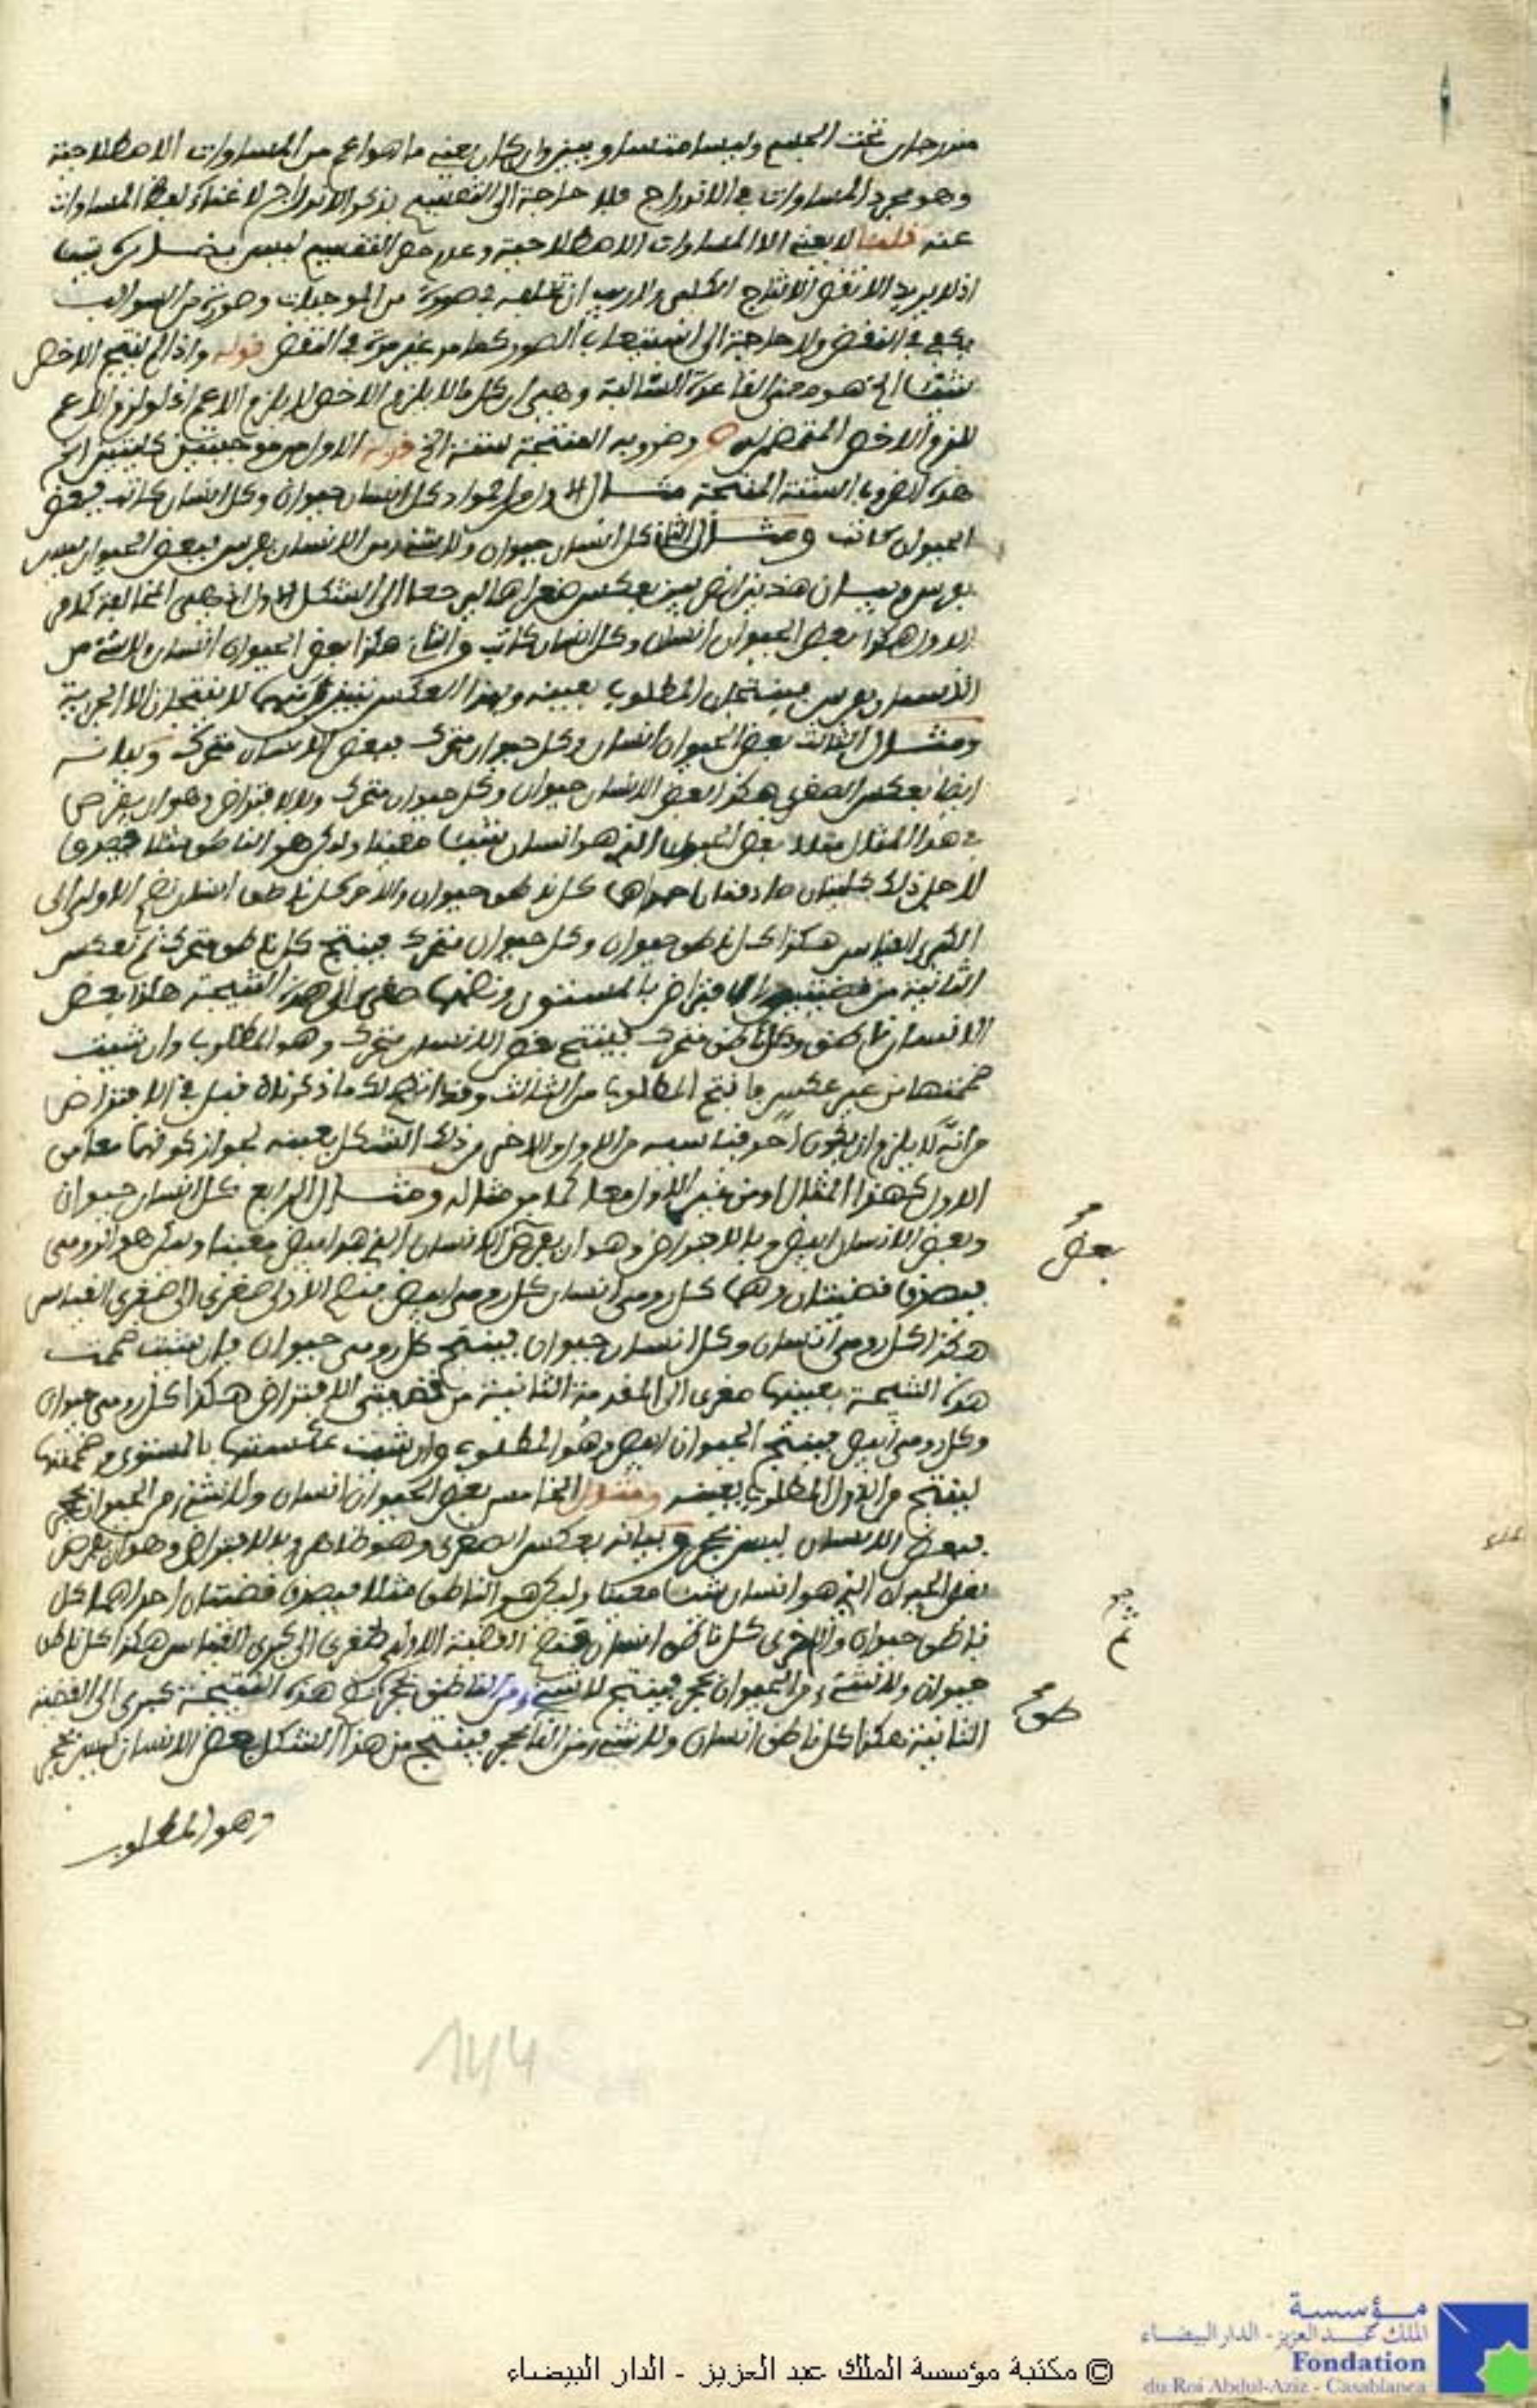 مندرجان تحت الجسم وليسا متساويين وان كان يعني ما هو اعم من المساوات الاصطلاحية
وهو مجرد المساوات في الاندراج فلا حاجة الى التقسيم بذكر الاندراج لاغناء لفظ المساوات
عنه قلت لا يعني الا المساوات الاصطلاحية وعدم حصر التقسيم ليس بضار
اذ لا يريد الا نقض الانتاج الكلي ولا ريب ان تخلفه في صورة من الموجبات وصورة من السوالب
يكفي في النقض ولا حاجة الى استيعاب الصور كما مر غير مرة في النقض قوله واذا لم ينتج الاخص
شيئا الخ هو معنى القاعدة السالبة وهي ان كل ما لا يلزم الاخص لا يلزم الاعم اذ لو لزم الاعم
للزم الاخص وضروبه المنتجة ستة الخ قوله الاول من موجبتين كليتين الخ
هذه الضروب الستة المنتجة مثال الاول كل انسان حيوان وكل انسان كاتب فبعض
الحيوان كاتب ومثال الثاني كل انسان حيوان ولا شيء من الانسان بفرس فبعض الحيوان ليس
بفرس وبيان هذين الضربين بعكس صغراهما ليرجعا الى الشكل الاول اذ هي المخالفة
الاول هكذا بعض الحيوان انسان وكل انسان كاتب والثاني هكذا بعض الحيوان انسان ولا شيء من
الانسان بفرس فينتجان المطلوب بعينه وبهذا العكس تبين انهما لا ينتجان الا الجزئية
ومثال الثالث بعض الحيوان انسان وكل حيوان متحرك فبعض الانسان متحرك وبيانه
ايضا بعكس الصغرى هكذا بعض الانسان حيوان وكل حيوان متحرك وبالافتراض وهو ان يفرض
في هذا المثال مثلا بعض الحيوان الذي هو انسان شيئا معينا وليكن هو الناطق مثلا فيصدق
لاجل ذلك كليتان صادقتان احداهما كل ناطق حيوان والاخرى كل ناطق انسان تضم الاولى الى
الكبرى القياس هكذا كل ناطق حيوان وكل حيوان متحرك فينتج كل ناطق متحرك ثم تعكس
الثانية من قضيتي الافتراض بالمستوى وتضمها صغرى الى هذه النتيجة هكذا بعض
الانسان ناطق وكل ناطق متحرك فينتج بعض الانسان متحرك وهو المطلوب وان شئت
ضممتها من غير عكس فانتج المطلوب من الثالث وقد اتضح لك ما ذكرناه قبل في الافتراض
من انه لا يلزم ان يكون احد قياسيه من الاول والاخر من ذلك الشكل بعينه لجواز كونهما معا من
الاول كهذا المثال او من غير الاول معا كما مر مثاله ومثال الرابع كل انسان حيوان
وبعض الانسان ابيض وبالافتراض وهو ان يفرض الانسان الذي هو ابيض معينا وليكن هو الرومي
بعض
فيصدق قضيتان وهما كل رومي انسان كل رومي ابيض فتضم الاولى صغرى الى صغرى القياس
هكذا كل رومي انسان وكل انسان حيوان فينتج كل رومي حيوان فان شئت ضممت
هذه النتيجة بعينها صغرى الى المقدمة الثانية من قضيتي الافتراض هكذا كل رومي حيوان
وكل رومي ابيض فينتج الحيوان ابيض وهو المطلوب وان شئت عكستها بالمستوى وضممتها
لينتج من الاول المطلوب بعينه ومثال الخامس بعض الحيوان انسان ولا شيء من الحيوان بحجر
فبعض الانسان ليس بحجر وبيانه بعكس الصغرى وهو ظاهر وبالافتراض وهو ان يفرض
بعض الحيوان الذي هو انسان شيئا معينا وليكن هو الناطق مثلا فيصدق قضيتان احداهما كل
ناطق حيوان والاخرى كل ناطق انسان فتضم القضية الاولى صغرى الى كبرى القياس هكذا كل ناطق
حيوان ولا شيء من الحيوان بحجر فينتج لا شيء من الناطق بحجر هذه النتيجة كبرى الى القضية
الثانية هكذا كل ناطق انسان ولا شيء من النا بحجر فينتج من هذا الشكل بعض الانسان ليس بحجر
طق
وهو المطلوب
144
مؤسسة
الملك عبد العزيز - الدار البيضاء
Fondation
du Roi Abdul-Aziz - Casablanca
© مكتبة مؤسسة الملك عبد العزيز - الدار البيضاء